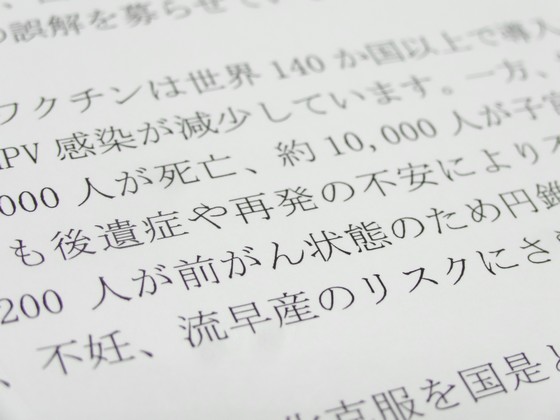 の誤解を募らせてい
ワクチンは世界 140 か国以上で導入
HPV 感染が減少しています。一方、
000 人が死亡、約 10,000 人が子宮
も後遺症や再発の不安により不
200 人が前がん状態のため円錐
、不妊、流早産のリスクにさ
化克服を国是と